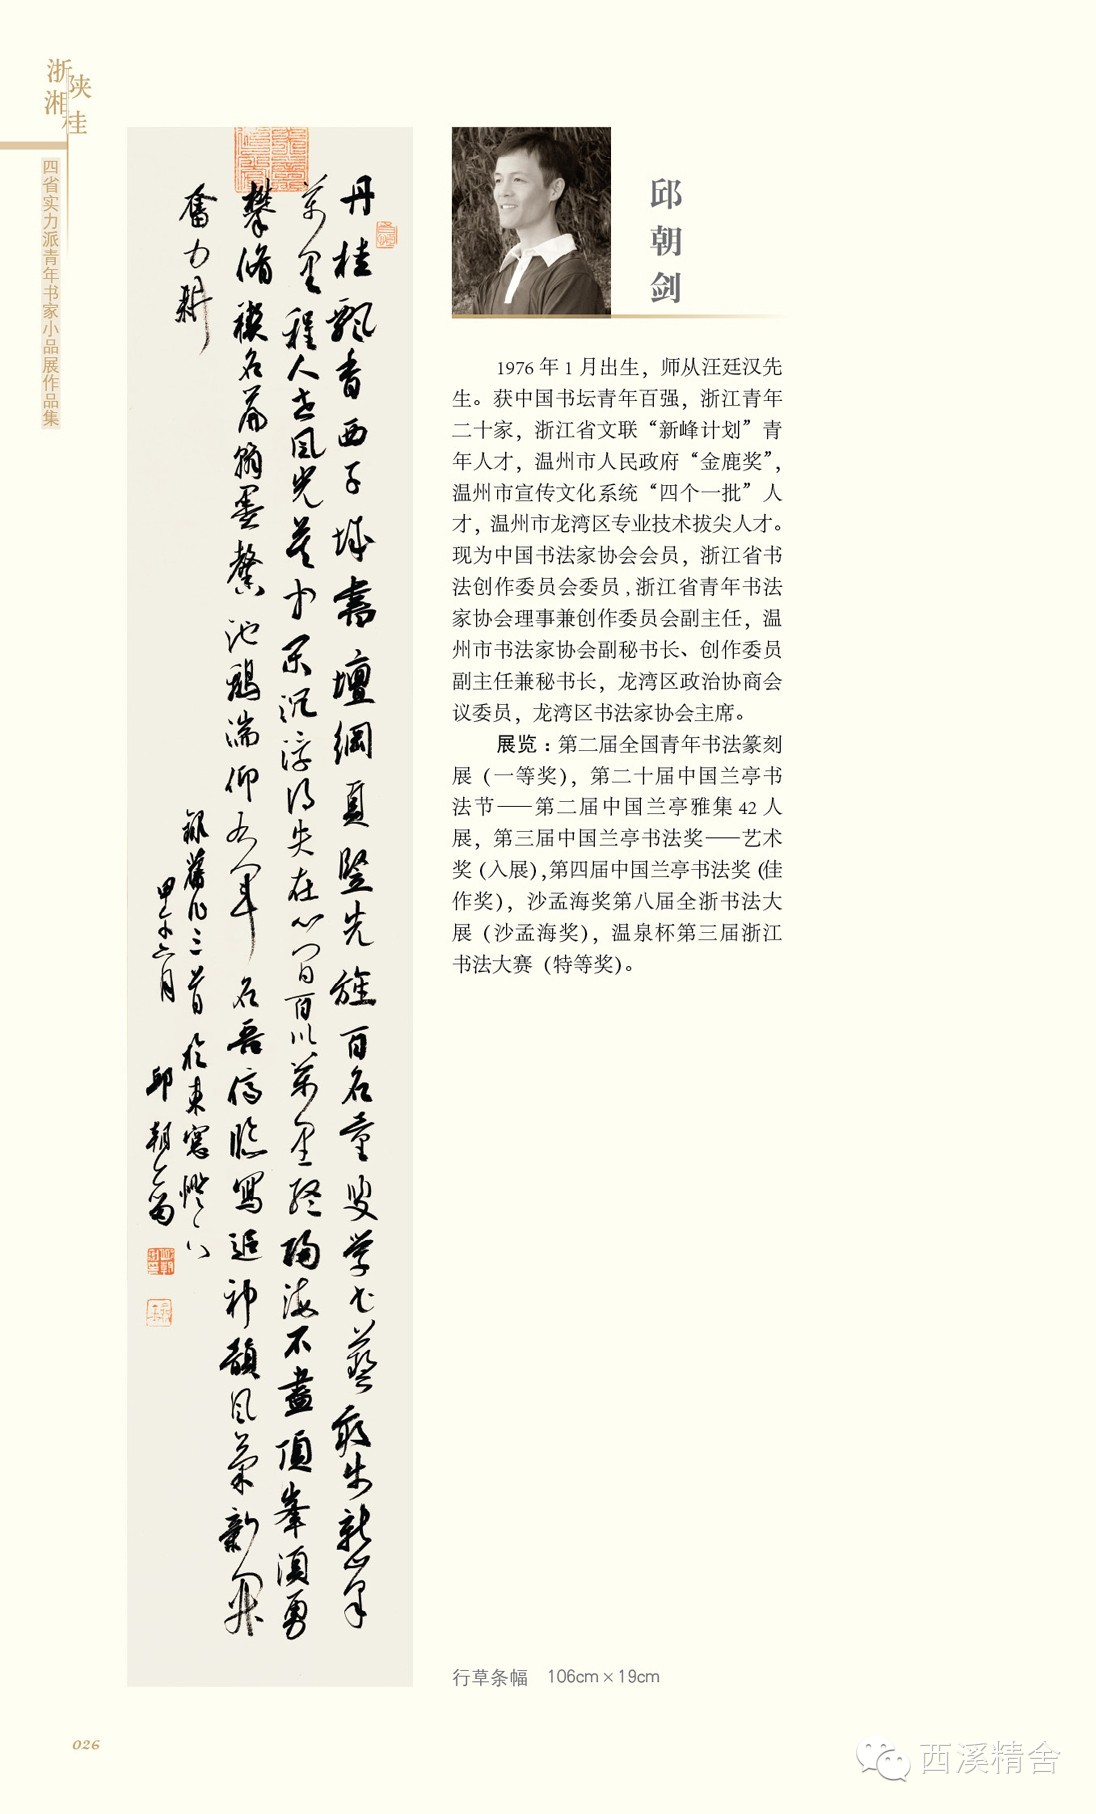 浙
陕
湘
桂
四省实力派青年书家小品展作品集
丹桂飄香西子城書壇綱夏豎先旌百名童叟学藝步新峯
萬里程人世風光沉浮得失在心间百川萬里終歸海不盡頂峯須勇
攀脩禊名篇翰墨馨池鵝湍仰右軍名吾儕臨寫追神韻風範新開
奮力耕
録舊作三首於東窗燈下
甲午六月 邱朝剑
邱朝剑
1976 年 1 月出生，师从汪廷汉先
生。获中国书坛青年百强，浙江青年
二十家，浙江省文联“新峰计划”青
年人才，温州市人民政府“金鹿奖”，
温州市宣传文化系统“四个一批”人
才，温州市龙湾区专业技术拔尖人才。
现为中国书法家协会会员，浙江省书
法创作委员会委员，浙江省青年书法
家协会理事兼创作委员会副主任，温
州市书法家协会副秘书长、创作委员
副主任兼秘书长，龙湾区政治协商会
议委员，龙湾区书法家协会主席。
展览：第二届全国青年书法篆刻
展（一等奖），第二十届中国兰亭书
法节——第二届中国兰亭雅集 42 人
展，第三届中国兰亭书法奖——艺术
奖（入展），第四届中国兰亭书法奖（佳
作奖），沙孟海奖第八届全浙书法大
展（沙孟海奖），温泉杯第三届浙江
书法大赛（特等奖）。
行草条幅 106cm×19cm
026
西溪精舍